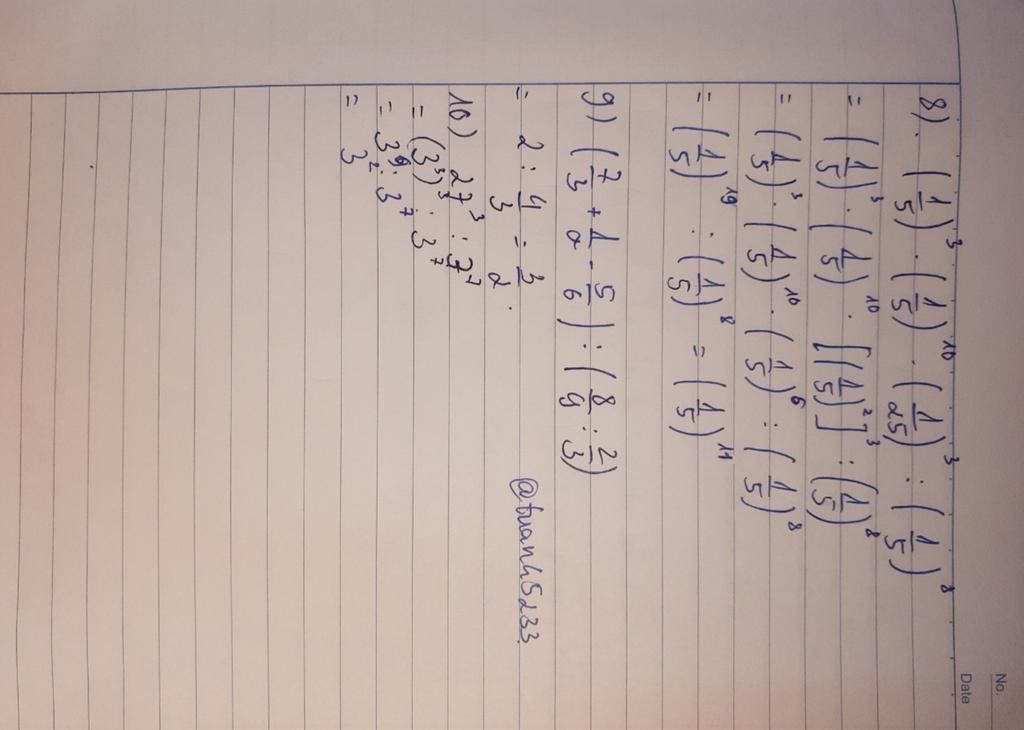 No.
Date
8). (1/5)³ · (1/5)¹⁰ · (1/25)³ : (1/5)⁸
= (1/5)³ · (1/5)¹⁰ · [(1/5)²]³ : (1/5)⁸
= (1/5)³ · (1/5)¹⁰ · (1/5)⁶ : (1/5)⁸
= (1/5)¹⁹ : (1/5)⁸ = (1/5)¹¹
9) (7/3 + 1/2 - 5/6) : (8/9 : 2/3)
= 2 : 4/3 = 3/2.
@tuanh5233
10) 27³ : 3⁷
= (3³)³ : 3⁷
= 3⁹ : 3⁷
= 3²